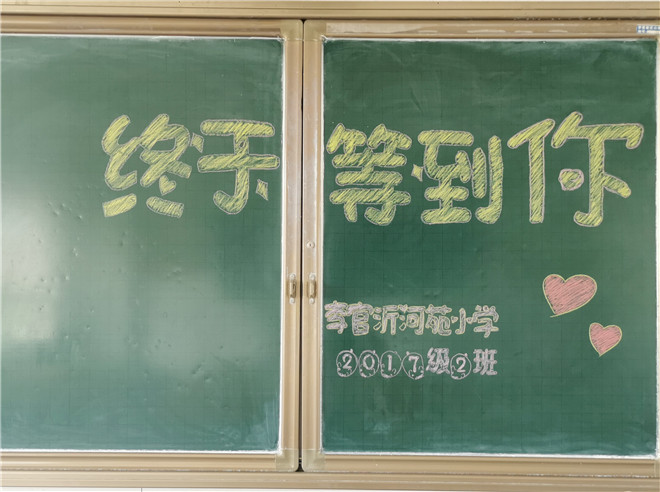 终于等到你
李官沂河苑小学
2017级2班